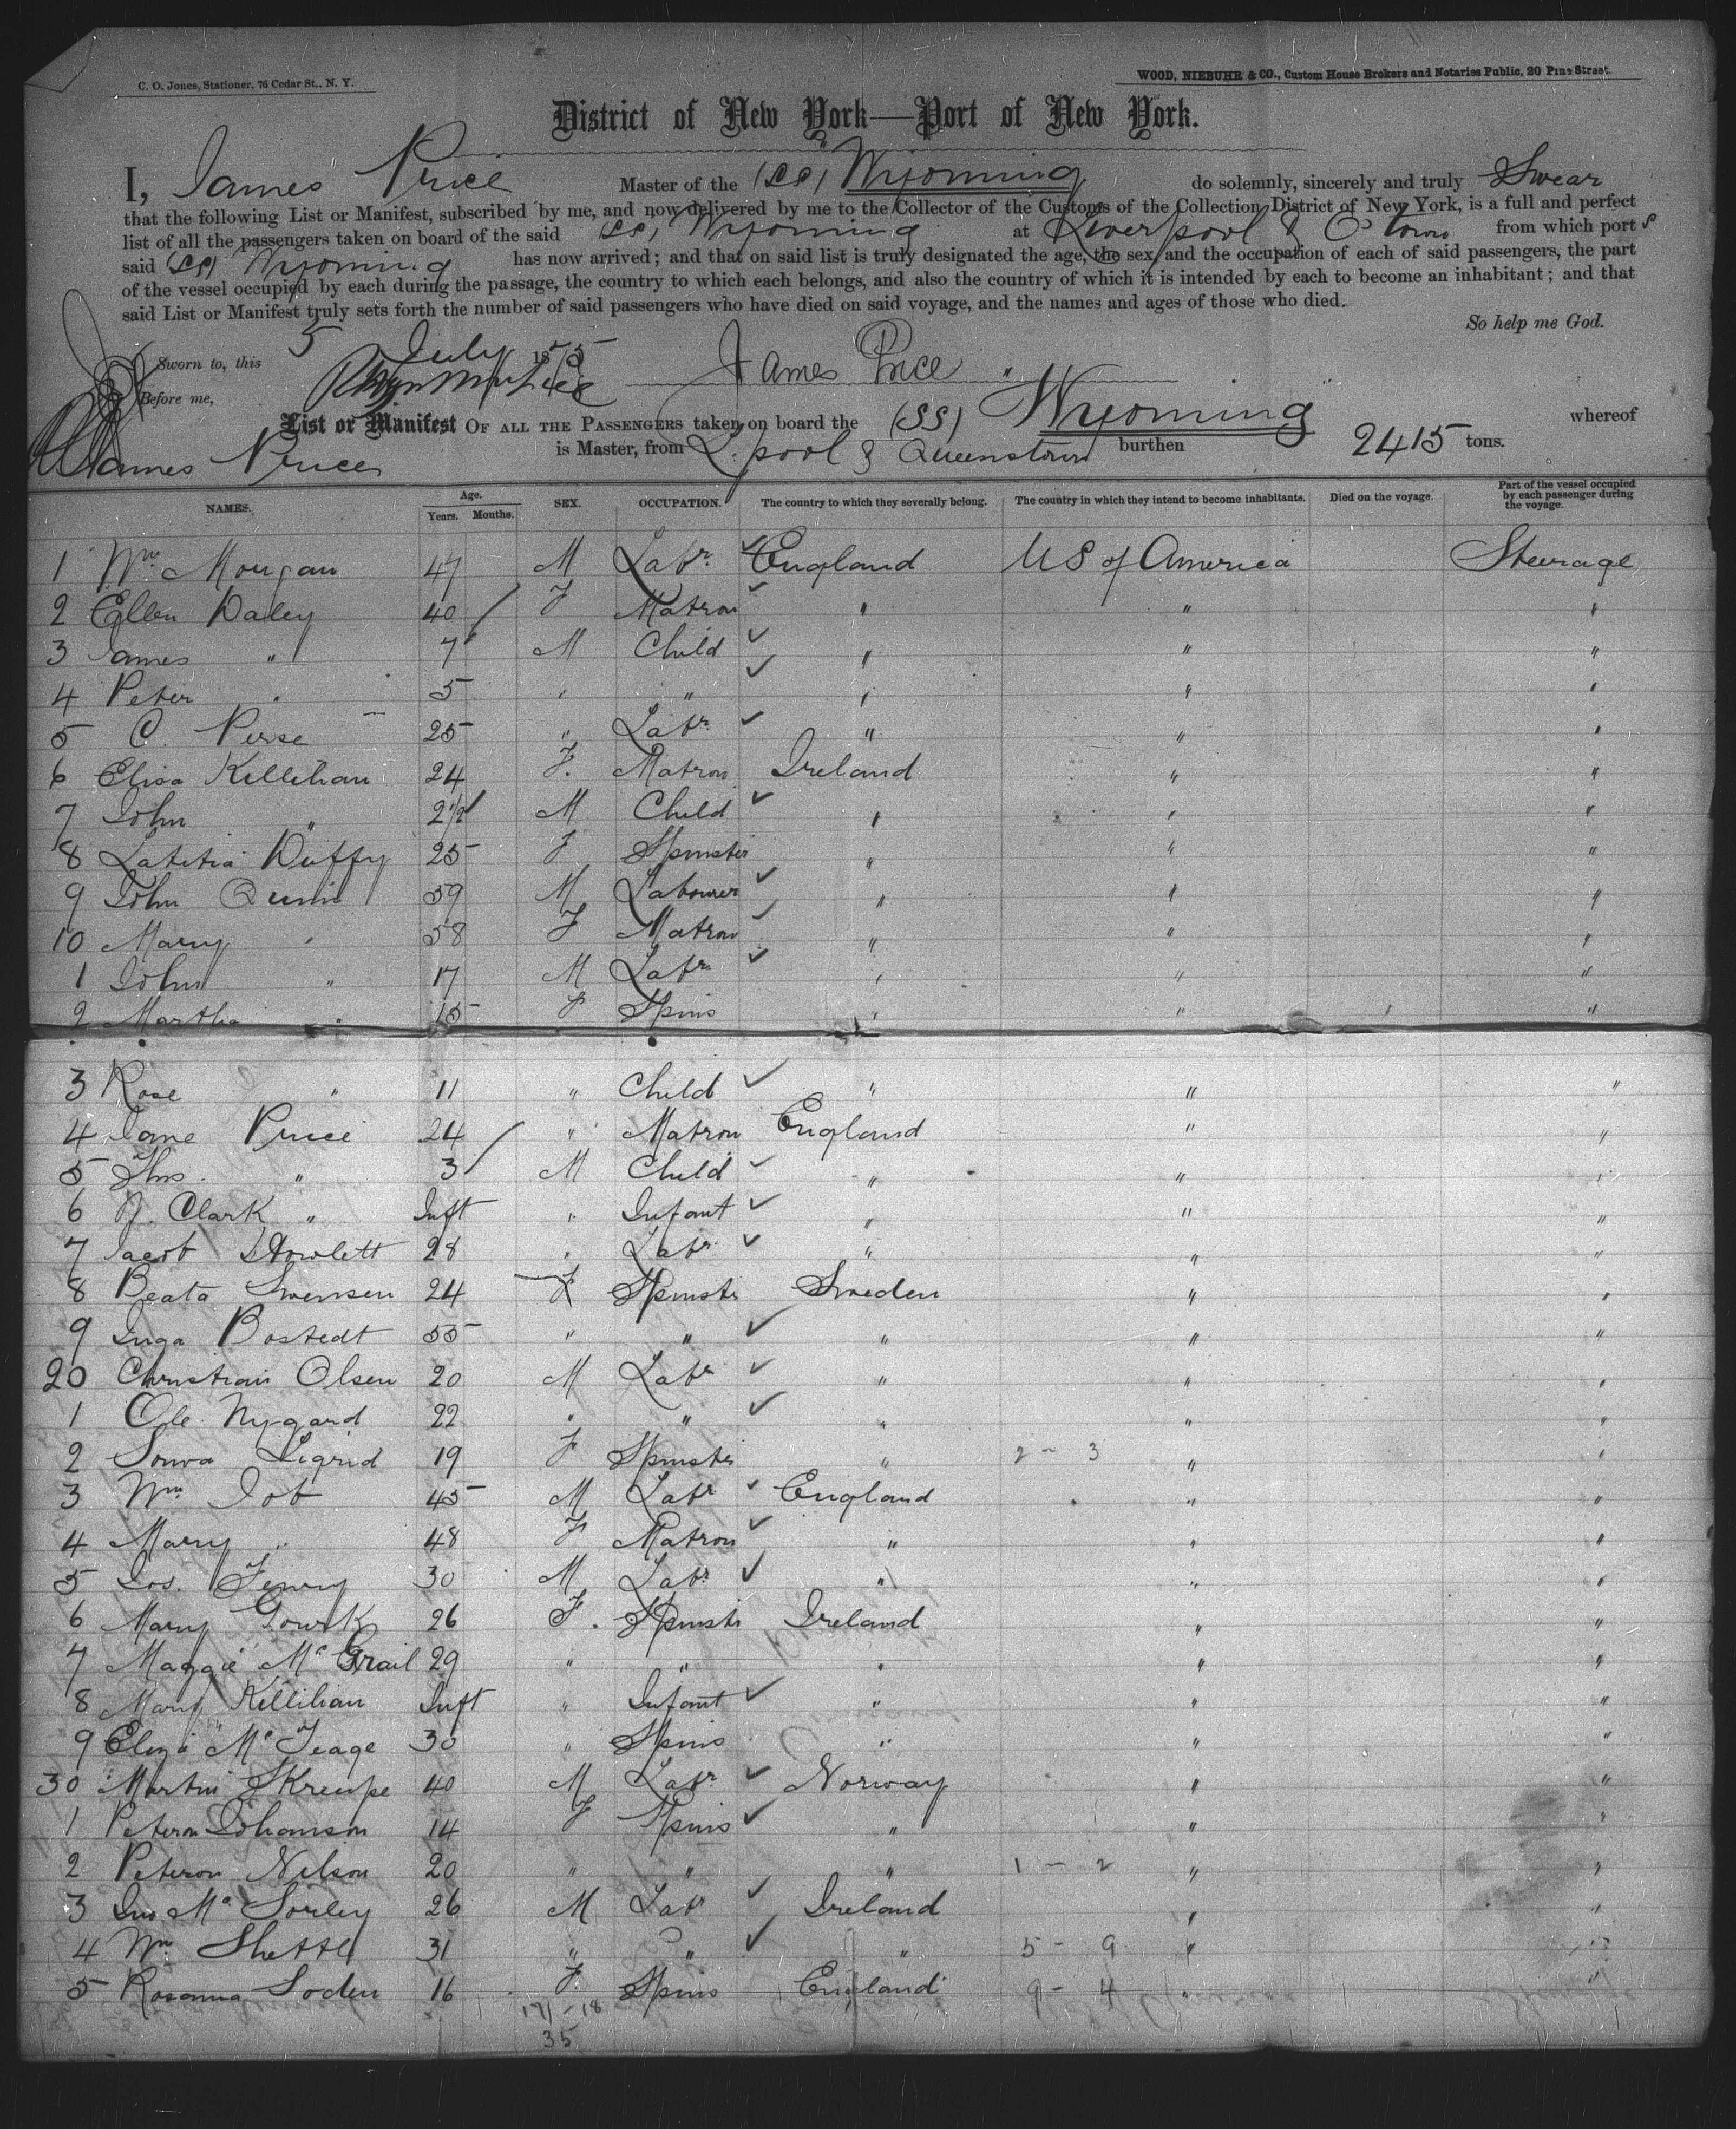 C. O. Jones, Stationer, 76 Cedar St., N. Y.
WOOD, NIEBUHR & CO., Custom House Brokers and Notaries Public, 20 Pine Street.
District of New York—Port of New York.
I, James Price Master of the (SS) "Wyoming do solemnly, sincerely and truly Swear
that the following List or Manifest, subscribed by me, and now delivered by me to the Collector of the Customs of the Collection District of New York, is a full and perfect
list of all the passengers taken on board of the said (SS) Wyoming at Liverpool & Q'town from which port s
said (SS) Wyoming has now arrived; and that on said list is truly designated the age, the sex, and the occupation of each of said passengers, the part
of the vessel occupied by each during the passage, the country to which each belongs, and also the country of which it is intended by each to become an inhabitant; and that
said List or Manifest truly sets forth the number of said passengers who have died on said voyage, and the names and ages of those who died.
So help me God.
Sworn to, this 5 July 1875 James Price
Before me,
List or Manifest OF ALL THE PASSENGERS taken on board the (SS) Wyoming whereof
James Price is Master, from L.pool & Queenstown burthen 2415 tons.
NAMES. Age. Years. Months. SEX. OCCUPATION. The country to which they severally belong. The country in which they intend to become inhabitants. Died on the voyage. Part of the vessel occupied by each passenger during the voyage.
1 Wm. Mongan 47 M Labr. England US of America Steerage
2 Ellen Daley 40 F Matron " " "
3 James " 7 M Child " " "
4 Peter " 5 " " " " "
5 C. Perse 25 " Labr. " " "
6 Eliza Killihan 24 F. Matron Ireland " "
7 John " 2½ M Child " " "
8 Latitia Duffy 25 F Spinster " " "
9 John Quinn 59 M Labourer " " "
10 Mary " 58 F Matron " " "
1 John " 17 M Labr " " "
2 Martha " 15 F Spins " " "
3 Rose " 11 " Child " " "
4 Jane Price 24 " Matron England " "
5 Thos. " 3 M Child " " "
6 J. Clark " Inft " Infant " " "
7 Jacob Howlett 28 " Labr " " "
8 Beata Swensen 24 F Spinster Sweden " "
9 Inga Bostedt 55 " " " " "
20 Christian Olsen 20 M Labr " " "
1 Ole Nygard 22 " " " " "
2 Sigrid 19 F Spinster " 2 - 3 " "
3 Wm. Job 45 M Labr England " "
4 Mary " 48 F Matron " " "
5 Jos. 30 M Labr " " "
6 Mary Gourk 26 F. Spinstr Ireland " "
7 Maggie McGrail 29 " " " " "
8 Mary Killihan Inft " Infant " " "
9 Eliza McTeage 30 " Spins " " "
30 Martin 40 M Labr Norway " "
1 Peteron Johanson 14 F Spins " " "
2 Peteron Nelson 20 " " " 1 - 2 " "
3 Jno McSorley 26 M Labr Ireland " "
4 Wm. 31 " " " 5 - 9 " "
5 Rosanna Soden 16 F. Spins England 9 - 4 " "
17 - 18
35